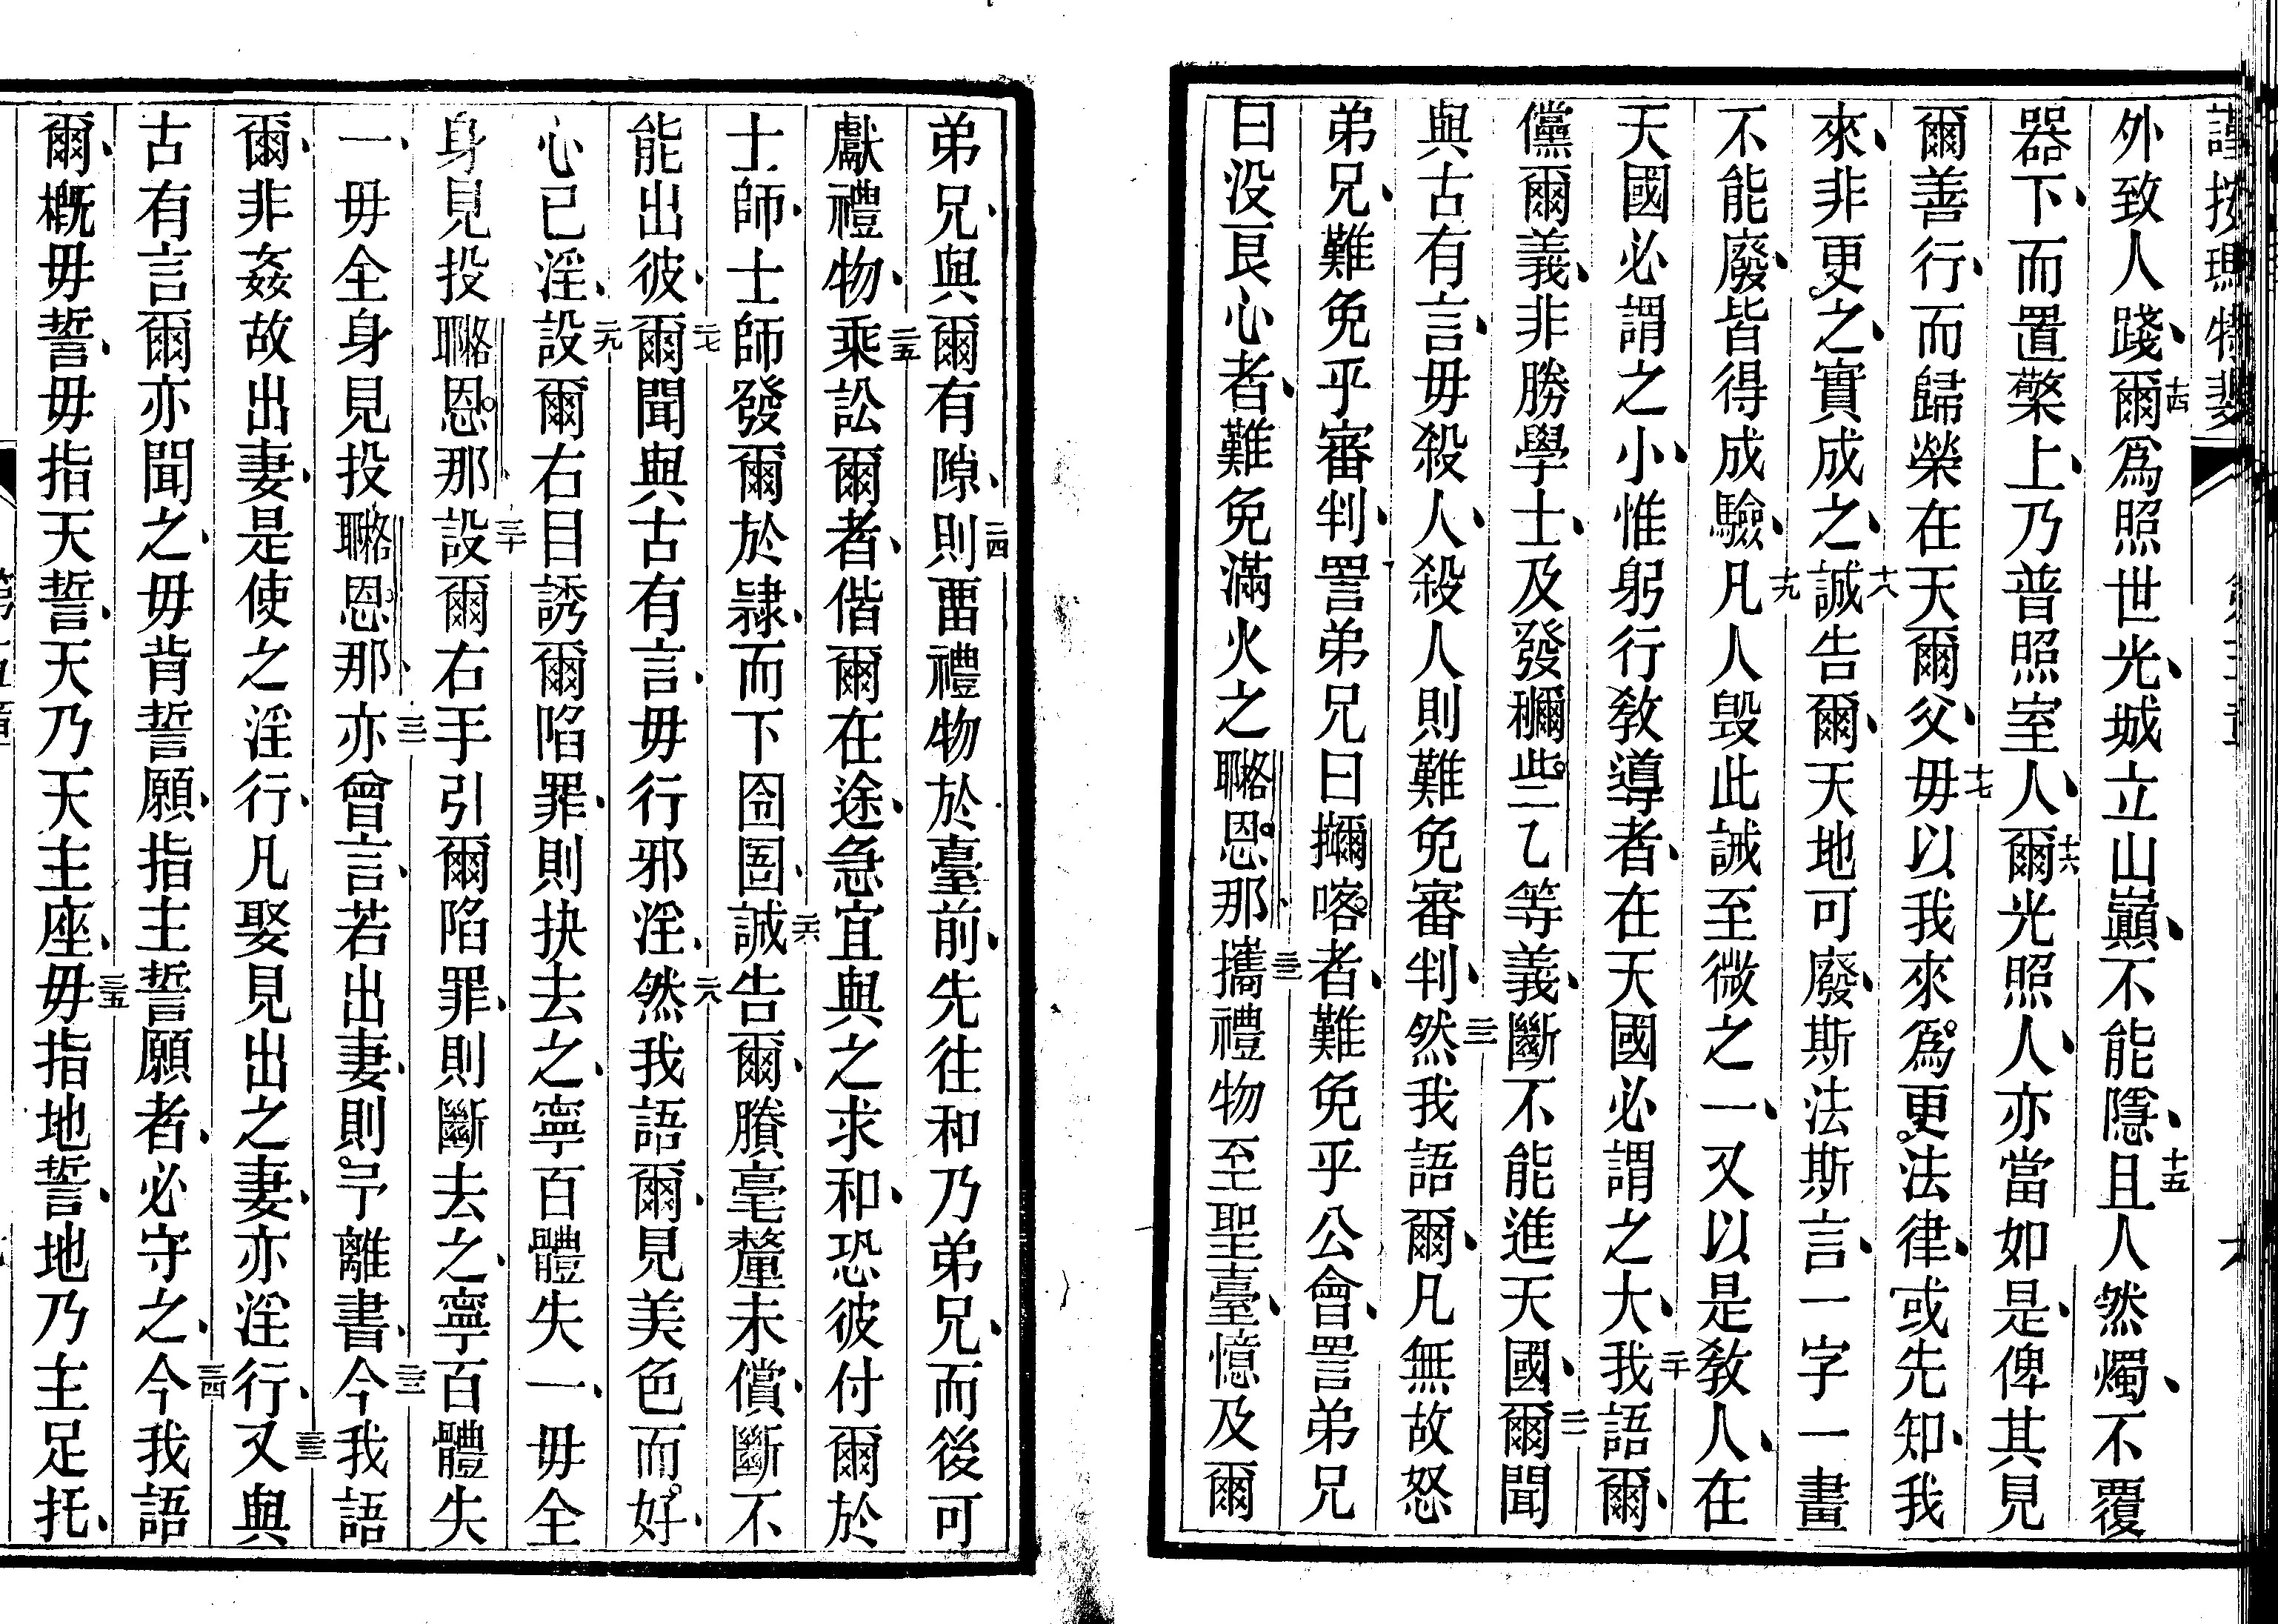 謹按瑪特斐
外致人踐、十四爾爲照世光、城立山巔、不能隱、十五且人然燭、不覆
器下、而置檠上、乃普照室人、十六爾光照人、亦當如是、俾其見
爾善行、而歸榮在天爾父、十七毋以我來爲更法律、或先知、我
來、非更之、實成之、十八誠告爾、天地可廢、斯法斯言、一字一畫
不能廢、皆得成驗、十九凡人毀此誡至微之一、又以是敎人、在
天國必謂之小、惟躬行敎導者、在天國必謂之大、二十我語爾、
儻爾義、非勝學士、及發穪些二乙等義、斷不能進天國、二一爾聞
與古有言、毋殺人、殺人則難免審判、二二然我語爾、凡無故怒
弟兄、難免乎審判、詈弟兄曰㩶喀者、難免乎公會、詈弟兄
曰没艮心者、難免滿火之𦗖恩那、二三攜禮物至聖臺、憶及爾
弟兄、與爾有隙、二四則畱禮物於臺前、先往和乃弟兄、而後可
獻禮物、二五乘訟爾者、偕爾在途、急宜與之求和、恐彼付爾於
士師、士師發爾於隸、而下囹圄、二六誠告爾、賸毫釐未償、斷不
能出彼、二七爾聞與古有言、毋行邪淫、二八然我語爾、見美色而好、
心已淫、二九設爾右目誘爾陷罪、則抉去之、寧百體失一、毋全
身見投𦗖恩那、三十設爾右手引爾陷罪、則斷去之、寧百體失
一、毋全身見投𦗖恩那、三一亦曾言、若出妻、則予離書、三二今我語
爾、非姦故出妻、是使之淫行、凡娶見出之妻、亦淫行、三三又與
古有言爾亦聞之、毋背誓願、指主誓願者、必守之、三四今我語
爾、槪毋誓、毋指天誓、天乃天主座、三五毋指地誓、地乃主足托、